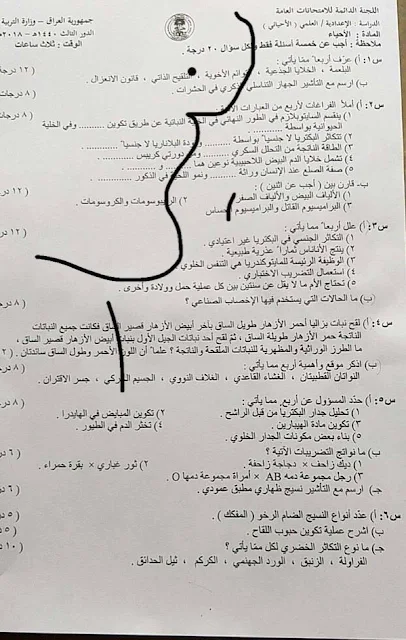 اللجنة الدائمة للامتحانات العامة
جمهورية العراق - وزارة التربية
الدراسة : الإعدادية / العلمي ( الأحيائي )
الدور الثالث ١٤٤٠هـ - ٢٠١٨
المادة : الأحياء
الوقت : ثلاث ساعات
ملاحظة : أجب عن خمسة أسئلة فقط ولكل سؤال ٢٠ درجة .
س١ : أ) عرّف أربعاً مما يأتي :
البلعمة ، الخلايا الجذعية ، التوائم الأخوية ، التلقيح الذاتي ، قانون الانعزال .
( ١٢ درجة
ب) ارسم مع التأشير الجهاز التناسلي الذكري في الحشرات .
( ٨ درجات
س٢ : أ) املأ الفراغات لأربع من العبارات
١) ينقسم السايتوبلازم في الطور النهائي في الخلية النباتية عن طريق تكوين ........ وفي الخلية
الحيوانية بواسطة ........
٢) تتكاثر البكتريا لا جنسياً بواسطة ........ البلاناريا لا جنسياً
٣) الطاقة الناتجة من التحلل السكري ........ دورتي كريبس ........
٤) تشمل خلايا الدم البيض اللاحبيبية نوعين هما ........ و ........
٥) صفة الصلع عند الإنسان وراثة ........ ونمو اللحية في الذكور ........
ب- قارن بين ( أجب عن اثنين ) :
( ٨ درجات
١) الألياف البيض والألياف الصفر
٢) الرايبوسومات والكروسومات .
٣) البراميسيوم القاتل والبراميسيوم الحساس
س٣ : أ) علل أربعاً مما يأتي :
( ١٢ در
١) التكاثر الجنسي في البكتريا غير اعتيادي .
٢) ينتج الأناناس ثماراً عذرية طبيعية .
٣) الوظيفة الرئيسة للمايتوكندريا هي التنفس الخلوي
٤) استعمال التضريب الاختباري .
٥) تحتاج الأم ما لا يقل عن سنتين بين كل عملية حمل وولادة وأخرى .
(ب) ما الحالات التي يستخدم فيها الإخصاب الصناعي ؟
( ٨ درجا
س٤ : أ) لقح نبات بزاليا أحمر الأزهار طويل الساق بآخر أبيض الأزهار قصير الساق فكانت جميع النباتات
الناتجة حمر الأزهار طويلة الساق ، ثم لقح أحد نباتات الجيل الأول بنبات أبيض الأزهار قصير الساق ،
ما الطرز الوراثية والمظهرية للنباتات الملقحة والناتجة ؟ علماً أن اللون الأحمر وطول الساق سائدتان . ( ٢
ب) اذكر موقع وأهمية أربع مما يأتي :
( ٨ در
النواتان القطبيتان ، الغشاء القاعدي ، الغلاف النووي ، الجسيم المركزي ، جسر الاقتران .
س٥ : أ) حدد المسؤول عن أربع مما يأتي :
( ٨ در
١) تحليل جدار البكتريا من قبل الراشح .
٢) تكوين المبايض في الهايدرا .
٣) تكوين مادة الهيبارين .
٤) تخثر الدم في الطيور .
٥) بناء بعض مكونات الجدار الخلوي .
ب) ما نواتج التضريبات الآتية ؟
( ٦ د
١) ديك زاحف × دجاجة زاحفة .
٢) ثور غباري × بقرة حمراء .
٣) رجل مجموعة دمه AB × امرأة مجموعة دمها O .
جـ) ارسم مع التأشير نسيج ظهاري مطبق عمودي .
( ٦ د
س٦ : أ) عدد أنواع النسيج الضام الرخو ( المفكك ) .
( ٥ د
ب) اشرح عملية تكوين حبوب اللقاح .
( ٥ د
جـ) ما نوع التكاثر الخضري لكل مما يأتي ؟
( ١٠ د
الفراولة ، الزنبق ، الورد الجهنمي ، الكركم ، ثيل الحدائق .